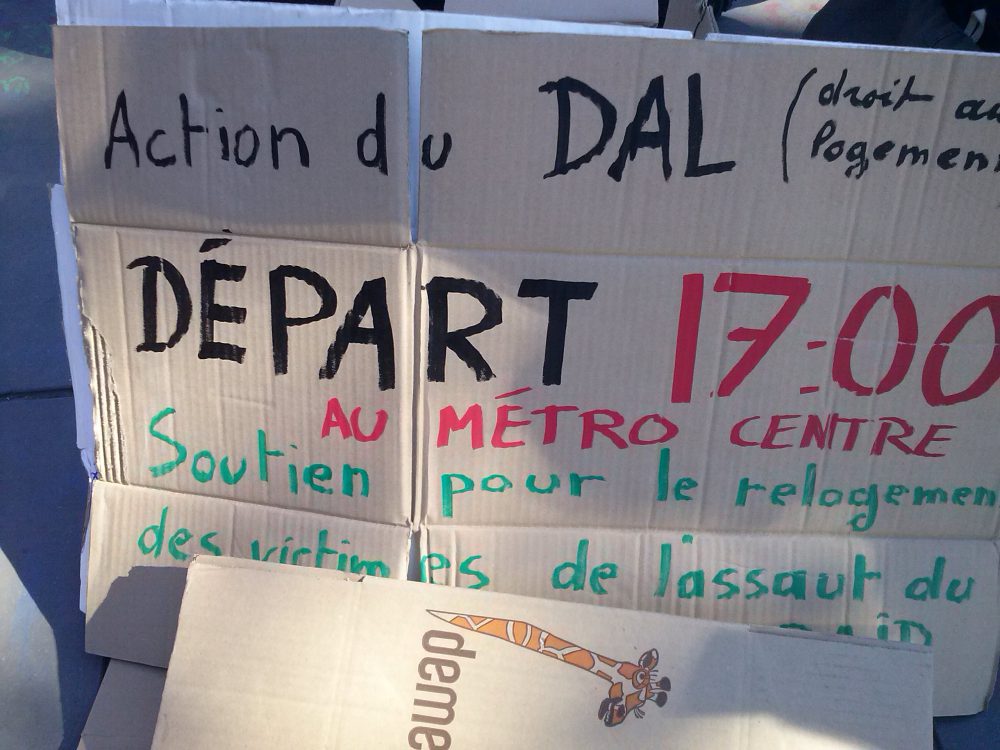 Action du DAL (droit au
logement
DÉPART 17:00
AU MÉTRO CENTRE
Soutien pour le relogemen
des victimes de l'assaut du
RAID
deme